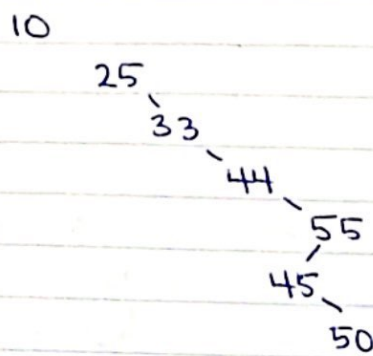 10
25
33
44
55
45
50